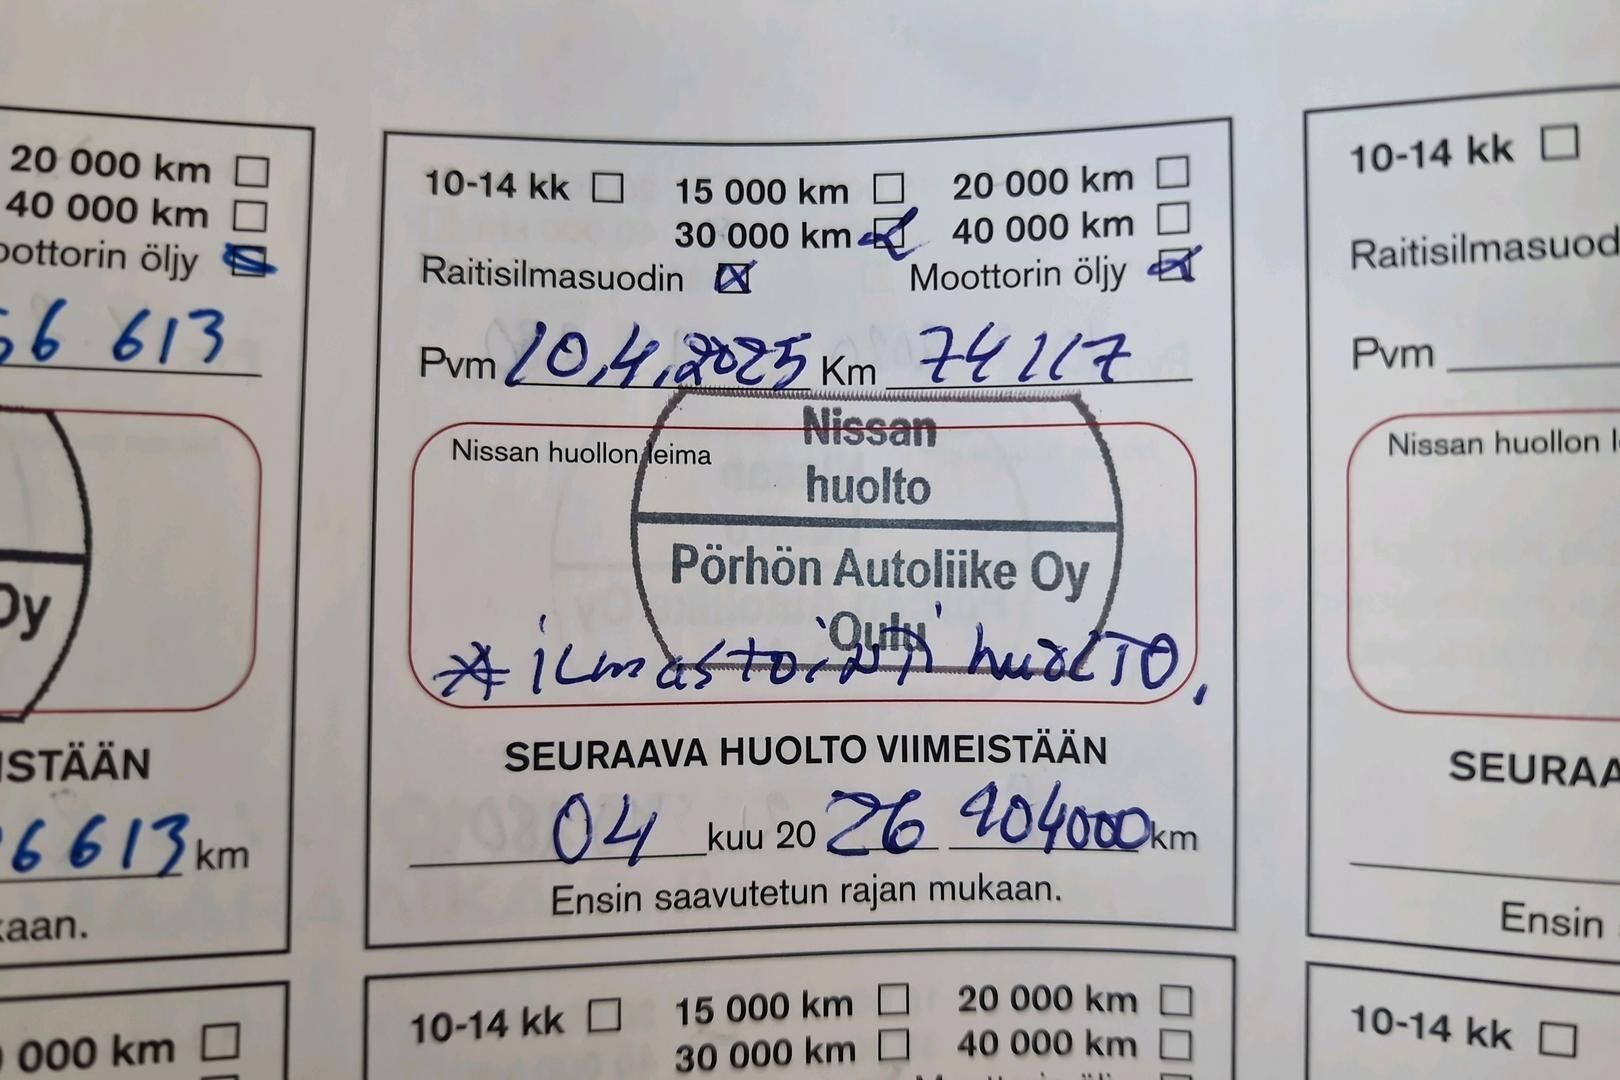 20 000 km
40 000 km
oottorin öljy
56 613
Oy
ISTÄÄN
6613 km
kaan.
000 km
10-14 kk 15 000 km 20 000 km
30 000 km 40 000 km
Raitisilmasuodin Moottorin öljy
Pvm 10.4.2025 Km 74117
Nissan huollon leima
Nissan
huolto
Pörhön Autoliike Oy
Oulu
* ilmastointi huolto.
SEURAAVA HUOLTO VIIMEISTÄÄN
04 kuu 20 26 104000 km
Ensin saavutetun rajan mukaan.
10-14 kk 15 000 km 20 000 km
30 000 km 40 000 km
10-14 kk
Raitisilmasuod
Pvm
Nissan huollon l
SEURAA
Ensin
10-14 kk